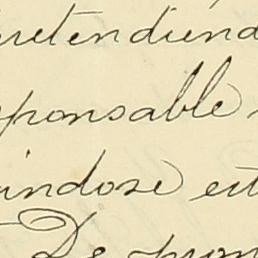 pretendiend
sponsable
indose est
De pron